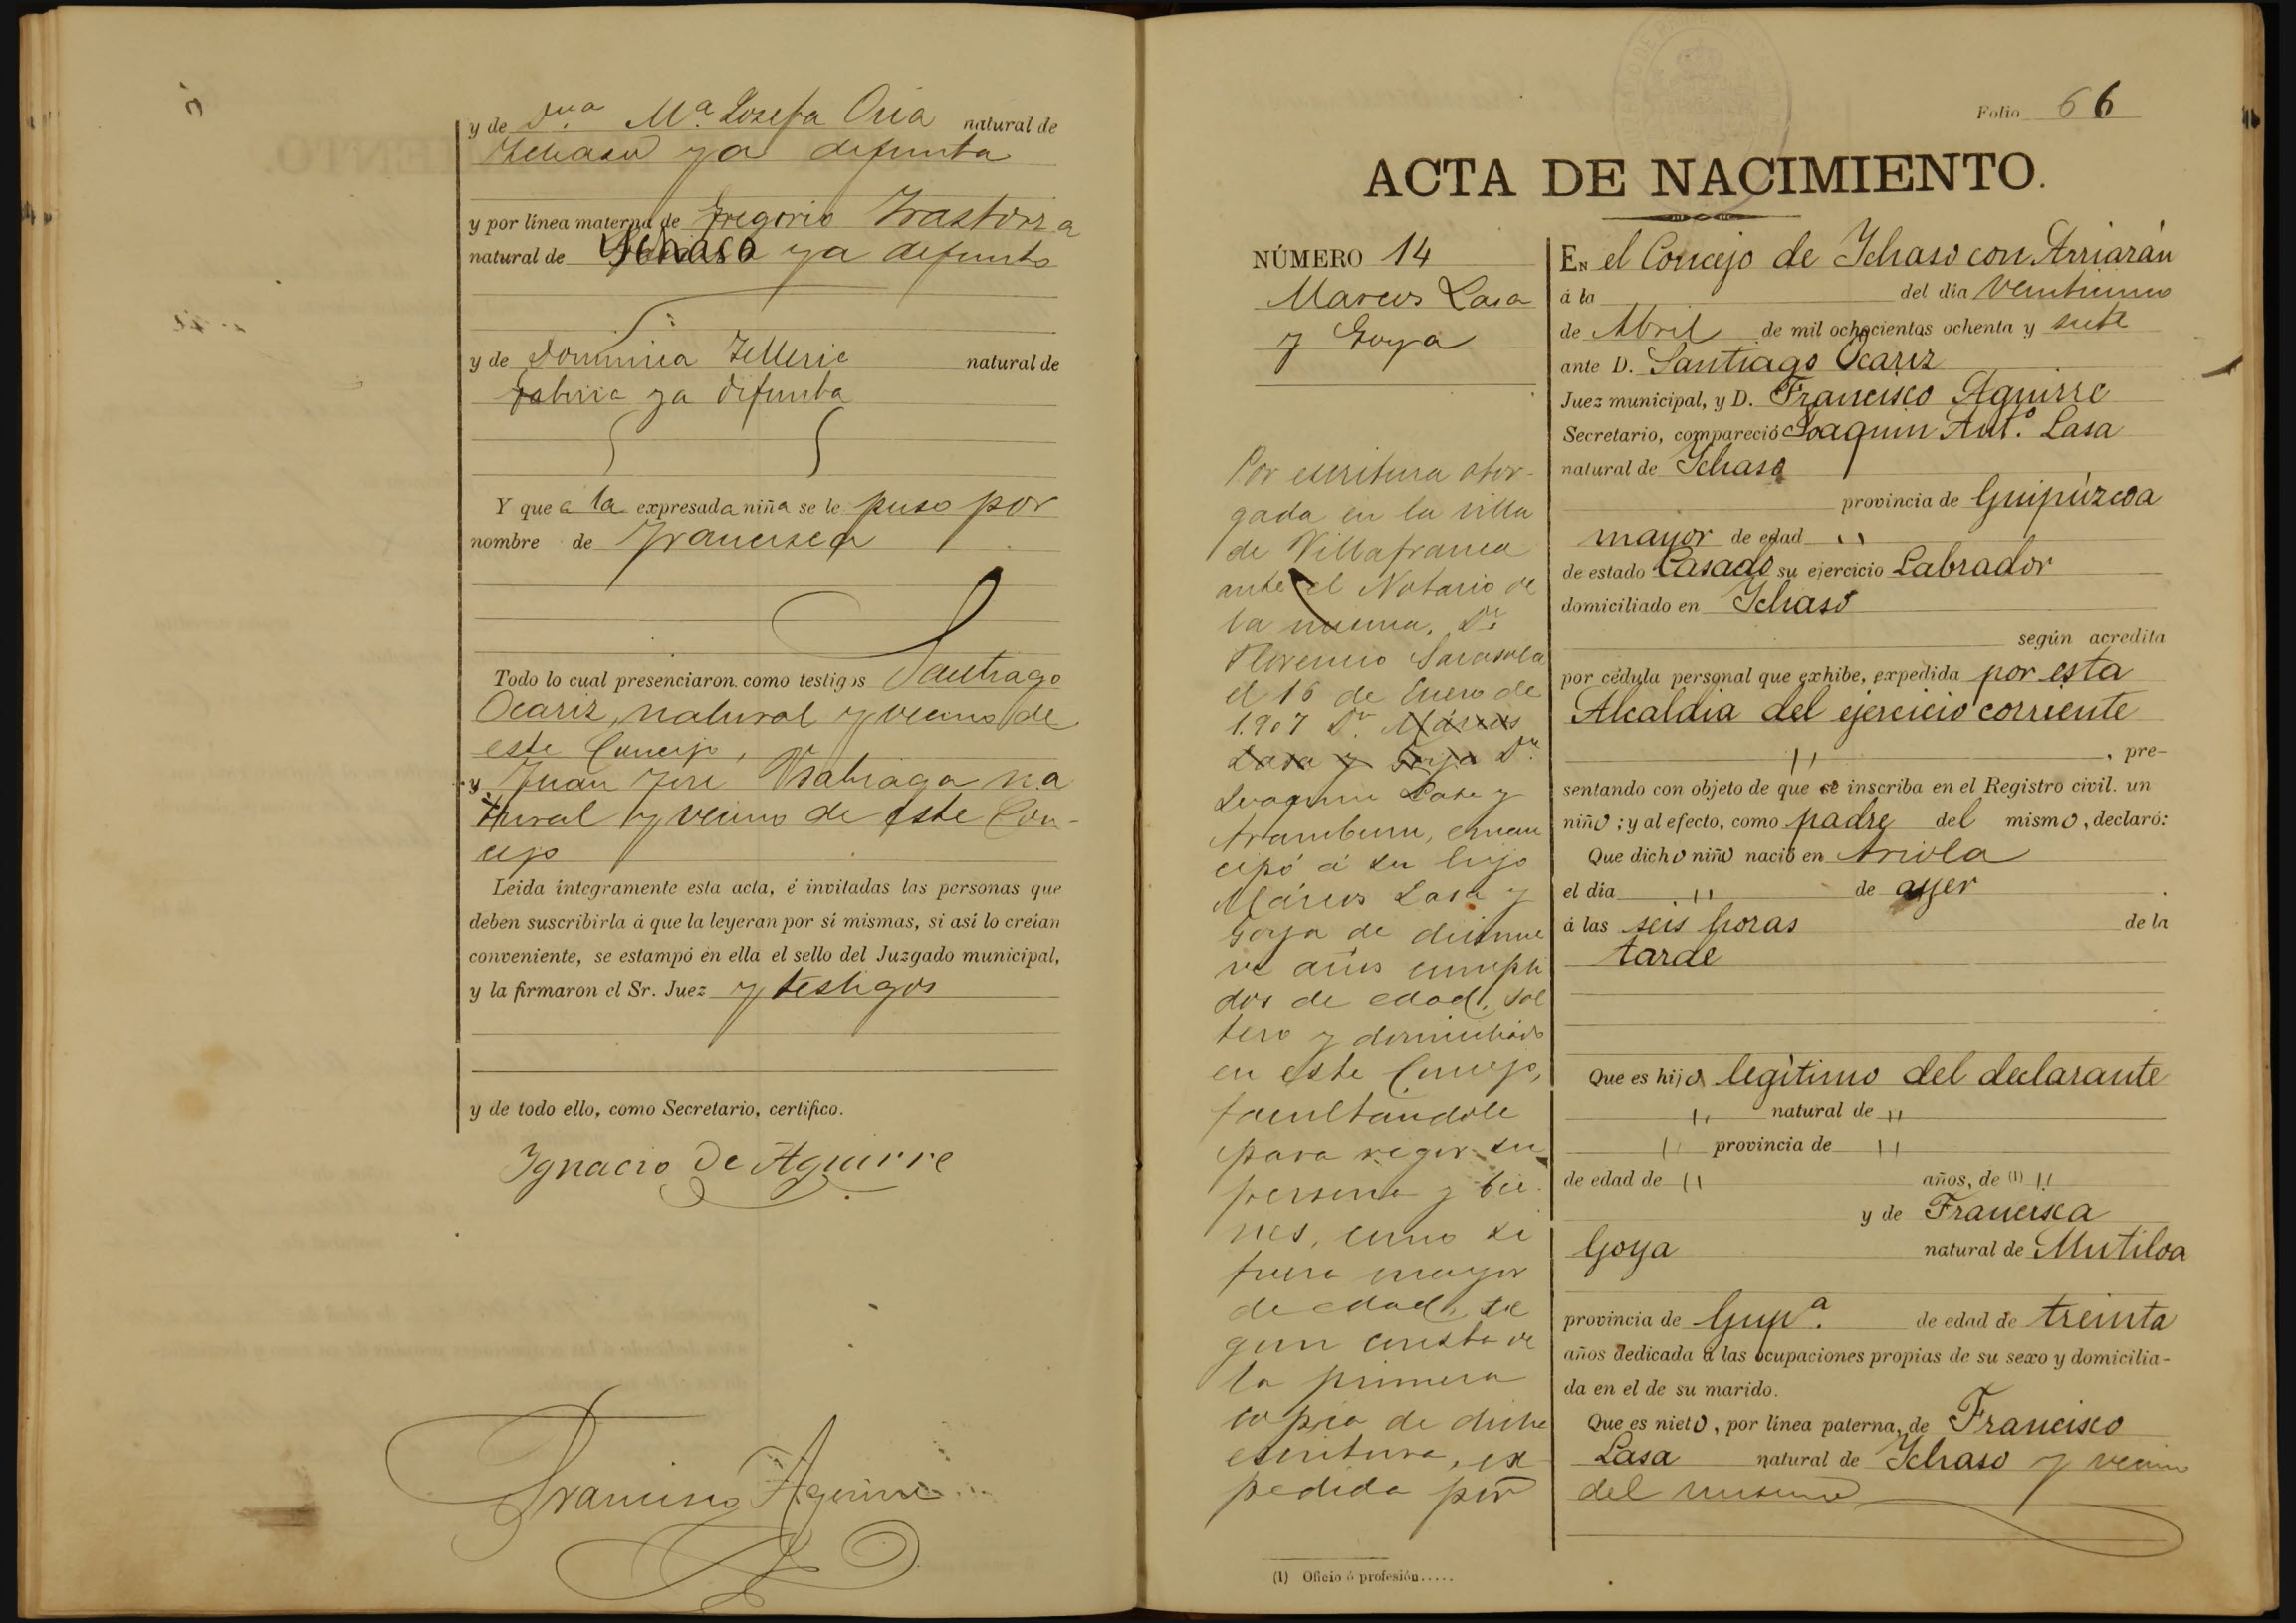 y de Dña Mª Josefa Oria natural de
Ichaso ya difunta
y por línea materna de Gregorio Irastorza
natural de Ichaso ya difunto
y de Dominica Telleria natural de
Gabiria ya difunta
Y que á la expresada niña se le puso por
nombre de Francisca
Todo lo cual presenciaron como testigos Santiago
Ocariz, natural y vecino de
este Concejo,
y Juan José Usabiaga na
tural y vecino de este Con-
cejo
Leida integramente esta acta, é invitadas las personas que
deben suscribirla á que la leyeran por sí mismas, si así lo creían
conveniente, se estampó en ella el sello del Juzgado municipal,
y la firmaron el Sr. Juez y testigos
y de todo ello, como Secretario, certifico.
Ignacio de Aguirre
Francisco Aguirre
Folio 66
ACTA DE NACIMIENTO.
NÚMERO 14
Marcos Lasa
y Goya
Por escritura otor-
gada en la villa
de Villafranca
ante el Notario de
la misma, Dn
Florencio Sarasola
el 16 de Enero de
1.907 Dn. Márcos
Lasa y Goya Dn
Joaquin Lasa y
Aramburu, eman
cipó á su hijo
Márcos Lasa y
Goya de diecinue
ve años cumpli
dos de edad, sol
tero y domiciliado
en este Concejo,
facultándole
para regir su
persona y bie
nes, como si
fuera mayor
de edad, se
gun consta de
la primera
copia de dicha
escritura, ex
pedida por
(1) Oficio ó profesión.....
EN el Concejo de Ichaso con Arriarán
á la del día veinticinco
de Abril de mil ochocientos ochenta y siete
ante D. Santiago Ocariz
Juez municipal, y D. Francisco Aguirre
Secretario, compareció Joaquin Antº. Lasa
natural de Ichaso
provincia de Guipúzcoa
mayor de edad "
de estado Casado su ejercicio Labrador
domiciliado en Ichaso
según acredita
por cédula personal que exhibe, expedida por esta
Alcaldia del ejercicio corriente
" , pre-
sentando con objeto de que se inscriba en el Registro civil. un
niño; y al efecto, como padre del mismo, declaró:
Que dicho niño nació en Ariola
el día " de ayer
á las seis horas de la
tarde
Que es hijo legítimo del declarante
" natural de "
" provincia de "
de edad de " años, de (1) "
y de Francisca
Goya natural de Mutiloa
provincia de Guipª. de edad de treinta
años dedicada á las ocupaciones propias de su sexo y domicilia-
da en el de su marido.
Que es nieto, por línea paterna, de Francisco
Lasa natural de Ichaso y vecino
del mismo